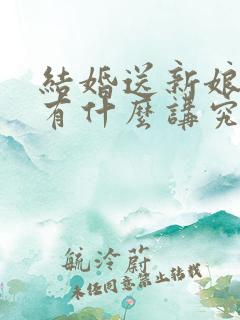 結婚送新娘
有什麼講究
毓泠蔚
未经同意禁止转载